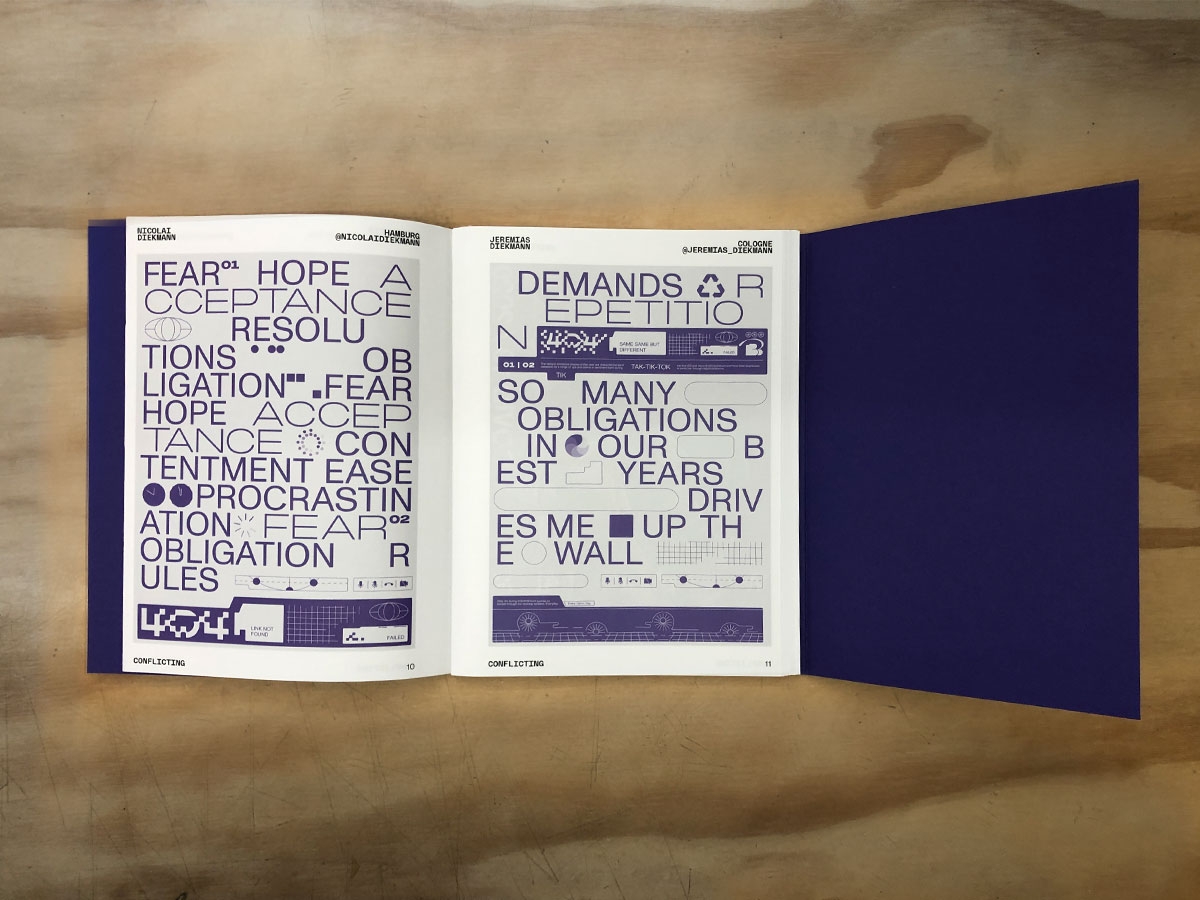 NICOLAI
DIEKMANN
HAMBURG
@NICOLAIDIEKMANN
FEAR01 HOPE A
CCEPTANCE
RESOLU
TIONS OB
LIGATION .FEAR
HOPE ACCEP
TANCE CON
TENTMENT EASE
PROCRASTIN
ATION FEAR02
OBLIGATION R
ULES
404
LINK NOT
FOUND
FAILED
CONFLICTING
10
JEREMIAS
DIEKMANN
COLOGNE
@JEREMIAS_DIEKMANN
DEMANDS R
EPETITIO
N
404
SAME SAME BUT
DIFFERENT
FAILED
01 | 02
TAK-TIK-TOK
TIK
SO MANY
OBLIGATIONS
IN OUR B
EST YEARS
DRIV
ES ME UP TH
E WALL
CONFLICTING
11